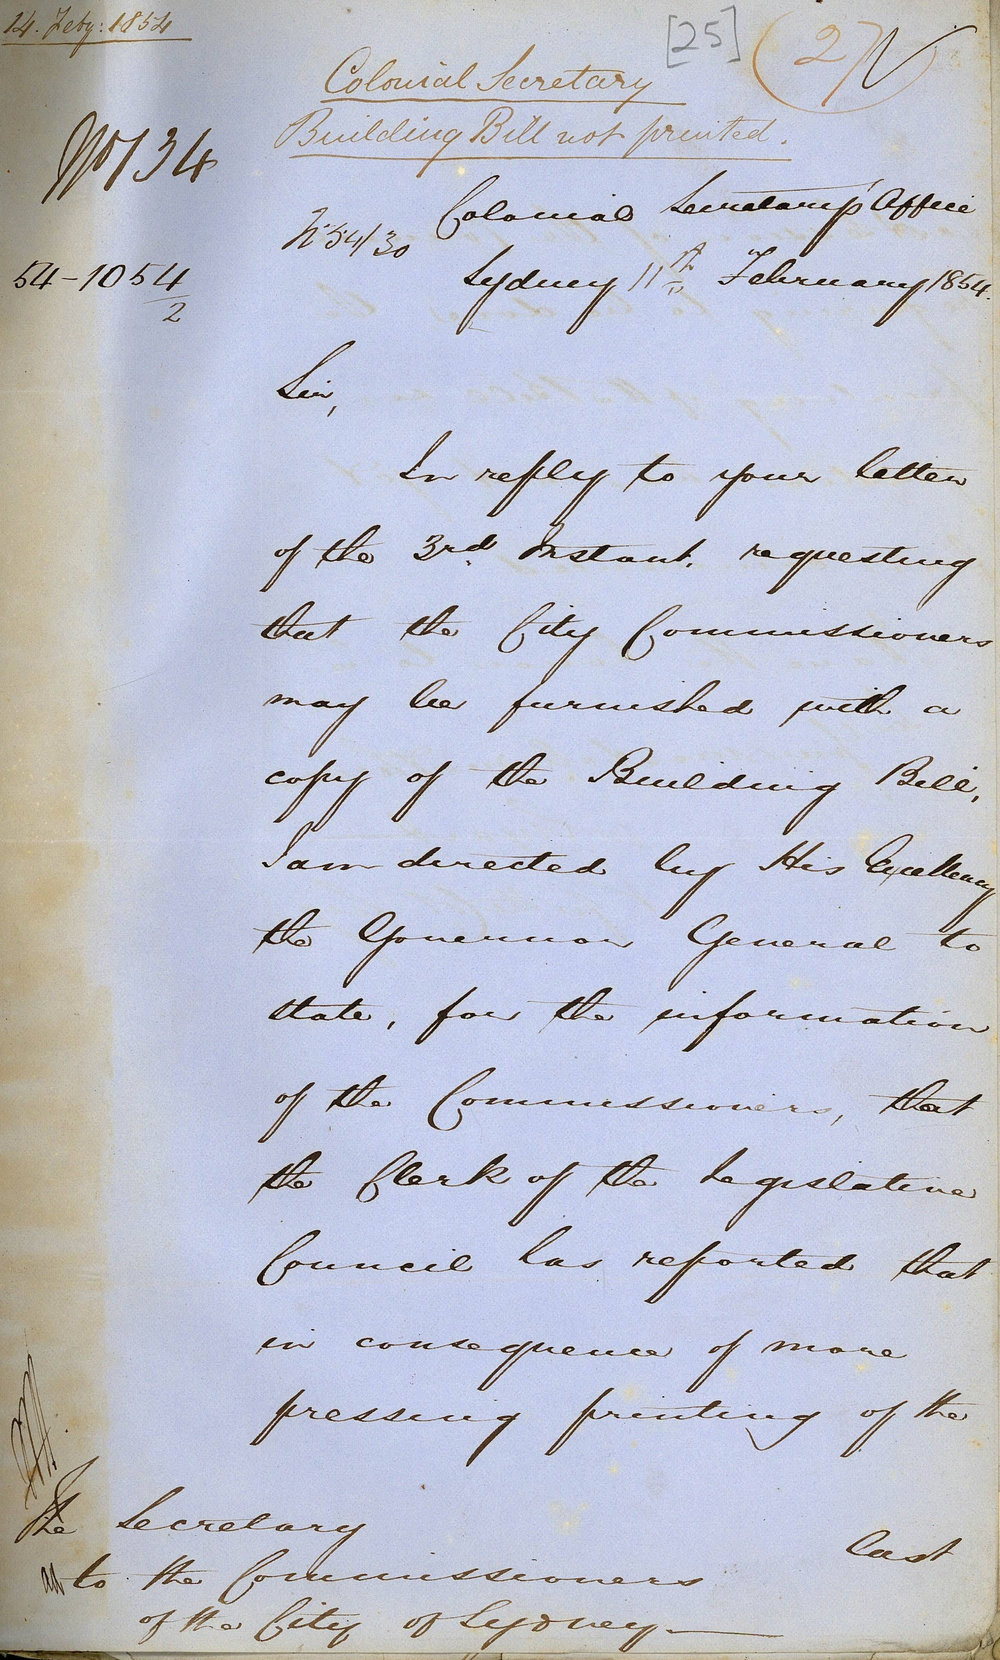 14. Feby: 1854
[25] (27)
Colonial Secretary
Building Bill not printed.
No 134
Colonial Secretary's Office
No 54/30
54-1054/2
Sydney 11th February 1854.
Sir,
In reply to your letter
of the 3rd. Instant, requesting
that the City Commissioners
may be furnished with a
copy of the Building Bill,
I am directed by His Excellency
the Governor General to
state, for the information
of the Commissioners, that
the Clerk of the Legislative
Council has reported that
in consequence of more
pressing printing of the
last
The Secretary
to the Commissioners
of the City of Sydney.